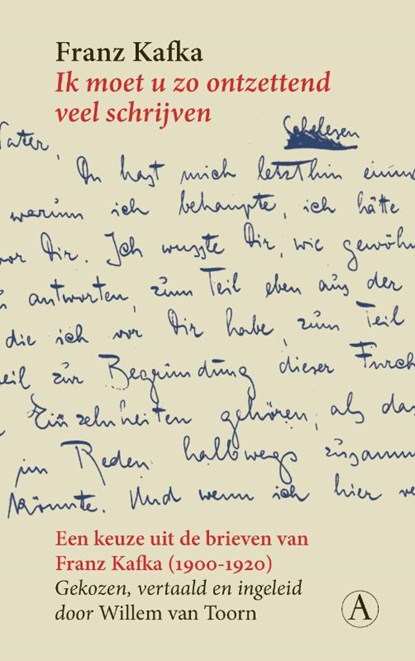 Franz Kafka
Ik moet u zo ontzettend
veel schrijven
Schelesen
Vater,
Du hast mich letzthin einma
warum ich behaupte, ich hätte
vor Dir. Ich wusste Dir, wie gewöhn
antworten, zum Teil eben aus der
die ich vor Dir habe, zum Teil
eil zur Begründung dieser Furch
Einzelnheiten gehören, als das
im Reden halbwegs zusamm
könnte. Und wenn ich hier ve
Een keuze uit de brieven van
Franz Kafka (1900-1920)
Gekozen, vertaald en ingeleid
door Willem van Toorn
A